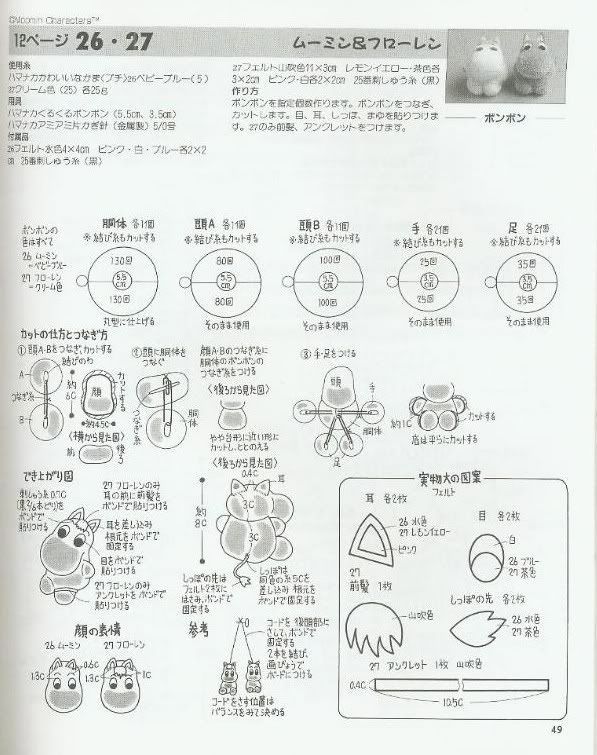 ©Moomin Characters™
12ページ 26・27
ムーミン&フローレン
使用糸
ハマナカかわいいなかま(プチ)26ベビーブルー(5)
27クリーム色(25) 各25g
用具
ハマナカくるくるポンポン(5.5cm、3.5cm)
ハマナカアミアミ片かぎ針(金属製)5/0号
付属品
26フェルト水色4×4cm ピンク・白・ブルー各2×2
cm 25番刺しゅう糸(黒)
27フェルト山吹色11×3cm レモンイエロー・茶色各
3×2cm ピンク・白各2×2cm 25番刺しゅう糸(黒)
作り方
ポンポンを指定個数作ります。ポンポンをつなぎ、
カットします。目、耳、しっぽ、まゆを貼りつけま
す。27のみ前髪、アンクレットをつけます。
ポンポン
ポンポンの
色はすべて
26 ムーミン
=ベビーブルー
27 フローレン
=クリーム色
胴体 各1個
※結び糸もカットする
130回
5.5
cm
130回
丸型に仕上げる
頭A 各1個
※結び糸もカットする
80回
5.5
cm
80回
そのまま使用
頭B 各1個
※結び糸もカットする
100回
5.5
cm
100回
そのまま使用
手 各2個
※結び糸もカットする
25回
3.5
cm
25回
そのまま使用
足 各2個
※結び糸もカットする
35回
3.5
cm
35回
そのまま使用
カットの仕方とつなぎ方
①頭A・Bをつなぎ、カットする
結びのわ
A
つなぎ糸
B
約
6C
顔
カットする
約4.5C
<横から見た図>
前
後ろ
②頭に胴体を
つなぐ
つなぎ糸
胴体
顔A・Bのつなぎ糸に
胴体のポンポンの
つなぎ糸をつける
<後ろから見た図>
やや台形に近い形に
カットし、ととのえる
③手・足をつける
頭
手
胴体
足
約1C
カットする
底は平らにカットする
でき上がり図
刺しゅう糸0.7C
ボンドで
貼りつける
27 フローレンのみ
耳の前に前髪を
ボンドで貼りつける
耳を差し込み
根元をボンドで
固定する
目をボンドで
貼りつける
27 フローレンのみ
アンクレットをボンドで
貼りつける
<後ろから見た図>
0.4C
耳
約
8C
3C
3C
しっぽの先は
フェルト2枚に
はさみ、ボンドで
固定する
しっぽは
同色の糸5Cを
差し込み 根元を
ボンドで固定する
顔の表情
26 ムーミン
27 フローレン
0.6C
1.3C
1.3C
1C
参考
コードを後頭部に
さして、ボンドで
固定する
2本を結び、
画びょうで
ボードにつける
コードをさす位置は
バランスをみて決める
実物大の図案
フェルト
耳 各2枚
26 水色
27 レモンイエロー
ピンク
目 各2枚
白
26 ブルー
27 茶色
27
前髪 1枚
山吹色
しっぽの先 各2枚
26 水色
27 茶色
27 アンクレット 1枚 山吹色
0.4C
10.5C
49